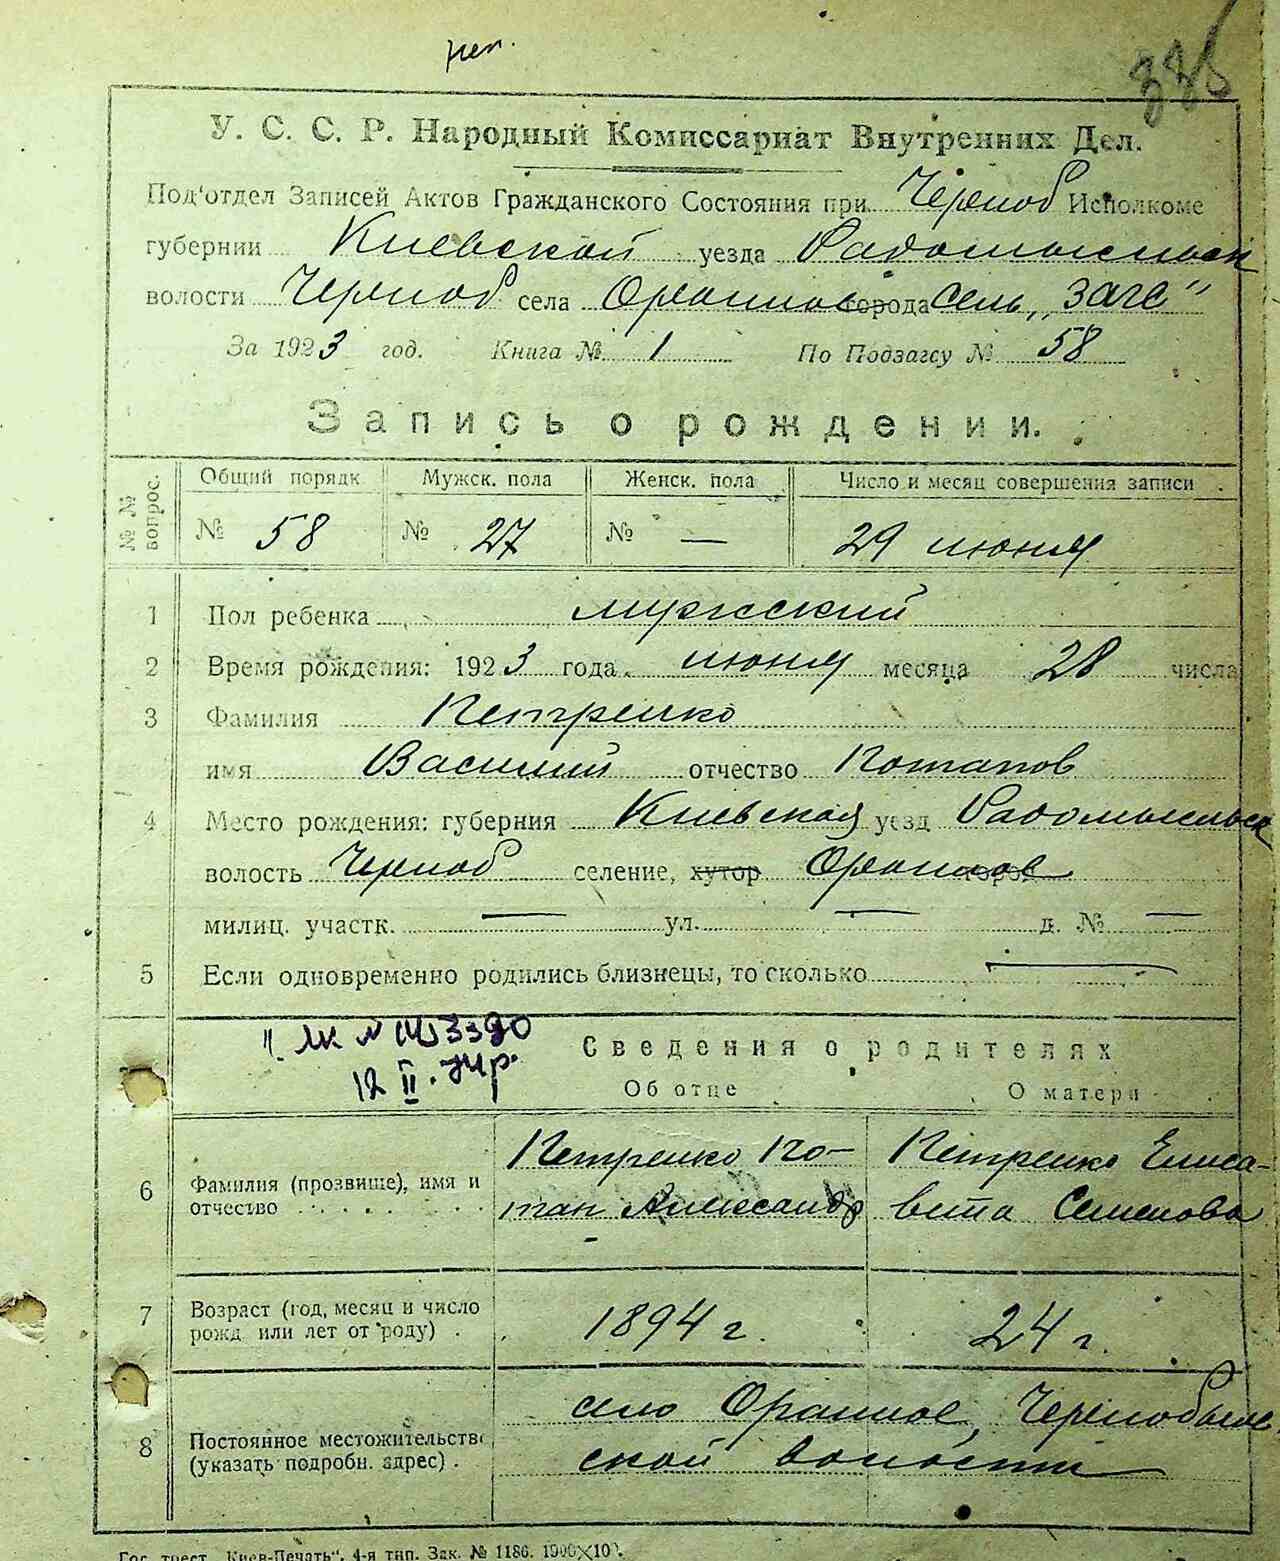 У. С. С. Р. Народный Комиссариат Внутренних Дел.
Под'отдел Записей Актов Гражданского Состояния при Черноб Исполкоме
губернии Киевской уезда Радомысльск
волости Черноб села Оранное города сель „ЗАГС"
За 1923 год. Книга № 1 По Подзагсу № 58
Запись о рождении.
№ № вопрос. Общий порядк Мужск. пола Женск. пола Число и месяц совершения записи
№ 58 № 27 № — 29 июня
1 Пол ребенка мужеский
2 Время рождения: 1923 года июня месяца 28 числа
3 Фамилия Петренко
имя Василий отчество Потапов
4 Место рождения: губерния Киевская уезд Радомысльск
волость Черноб селение, хутор Оранное
милиц. участк. — ул. — д. № —
5 Если одновременно родились близнецы, то сколько —
Сведения о родителях
12 II.
Об отце О матери
6 Фамилия (прозвище), имя и отчество Петренко По-
тап Александр
Петренко Елиса-
вета Семенова
7 Возраст (год, месяц и число
рожд или лет от роду) . 1894 г. 24 г.
8 Постоянное местожительств
(указать подробн. адрес) .
село Оранное, Чернобыль
ской волости
Гос. трест „Киев-Печать", 4-я тип. Зак. № 1186.